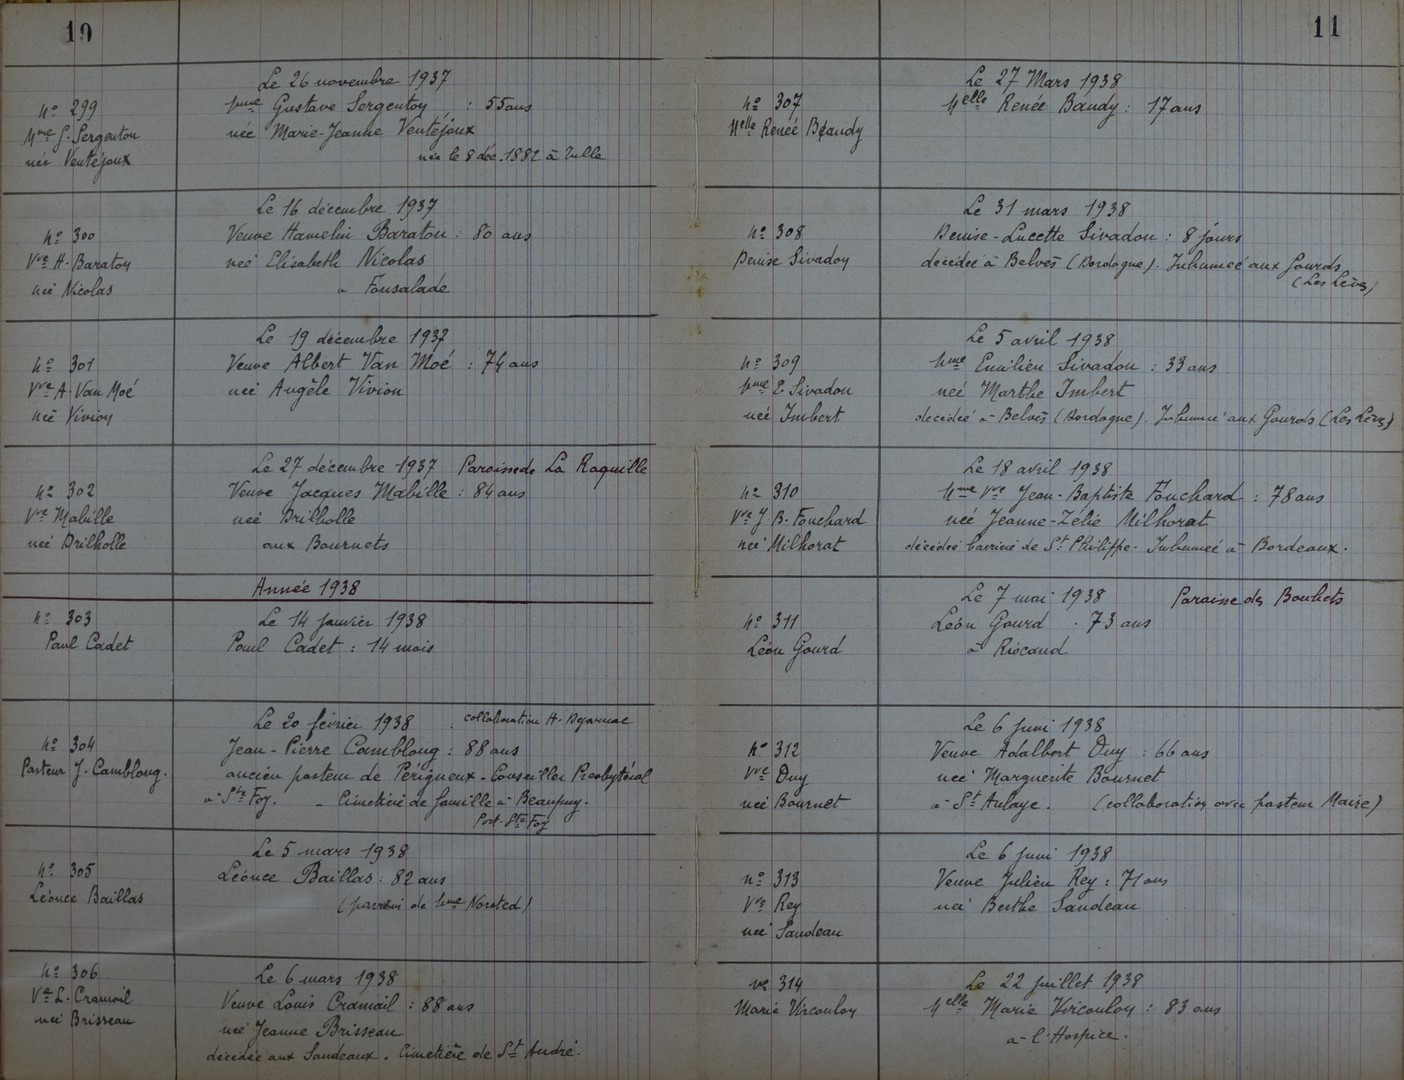 10
Le 26 novembre 1937
n° 299
Mme Gustave Sergenton : 55 ans
Mme G. Sergenton
née Marie-Jeanne Ventéjoux
née Ventéjoux
née le 8 déc. 1882 à Tulle
Le 16 décembre 1937
n° 300
Veuve Hamelin Baraton : 80 ans
Vve H. Baraton
née Elisabeth Nicolas
née Nicolas
à Fonsalade
Le 19 décembre 1937
n° 301
Veuve Albert Van Moé : 74 ans
Vve A. Van Moé
née Angèle Vivion
née Vivion
Le 27 décembre 1937 Paroisse de La Roquille
n° 302
Veuve Jacques Mabille : 84 ans
Vve Mabille
née Drilholle
née Drilholle
aux Bournets
Année 1938
n° 303
Le 14 janvier 1938
Paul Cadet
Paul Cadet : 14 mois
Le 20 février 1938 collaboration H.
n° 304
Jean-Pierre Camblong : 88 ans
Pasteur J. Camblong.
ancien pasteur de Périgueux - Conseiller Presbytéral
à Ste Foy. - Cimetière de famille à Beaupuy.
Port-Ste Foy
Le 5 mars 1938
n° 305
Léonce Baillas : 82 ans
Léonce Baillas
(parrain de Mme)
Le 6 mars 1938
n° 306
Veuve Louis Cramail : 88 ans
Vve L. Cramail
née Jeanne Brisseau
née Brisseau
décédée aux Sandeaux. Cimetière de St André.
11
Le 27 Mars 1938
n° 307
Melle Renée Baudy : 17 ans
Melle Renée Baudy
Le 31 mars 1938
n° 308
Denise-Lucette Sivadon : 8 jours
Denise Sivadon
décédée à Belvès (Dordogne). Inhumée aux Gourds
(Les Lèves)
Le 5 avril 1938
n° 309
Mme Emilien Sivadon : 33 ans
Mme E. Sivadon
née Marthe Imbert
née Imbert
décédée à Belvès (Dordogne). Inhumée aux Gourds (Les Lèves)
Le 18 avril 1938
n° 310
Mme Vve Jean-Baptiste Fouchard : 78 ans
Vve J. B. Fouchard
née Jeanne-Zélie Milhorat
née Milhorat
décédée barrière de St Philippe - Inhumée à Bordeaux.
Le 7 mai 1938 Paroisse des Bouhets
n° 311
Léon Gourd : 73 ans
Léon Gourd
à Riocaud
Le 6 juin 1938
n° 312
Veuve Adalbert Duy : 66 ans
Vve Duy
née Marguerite Bournet
née Bournet
à St Aulaye. (collaboration avec pasteur Maire)
Le 6 juin 1938
n° 313
Veuve Julien Rey : 71 ans
Vve Rey
née Berthe Sandeau
née Sandeau
Le 22 juillet 1938
n° 314
Melle Marie Vircoulon : 83 ans
Marie Vircoulon
à l'Hospice.